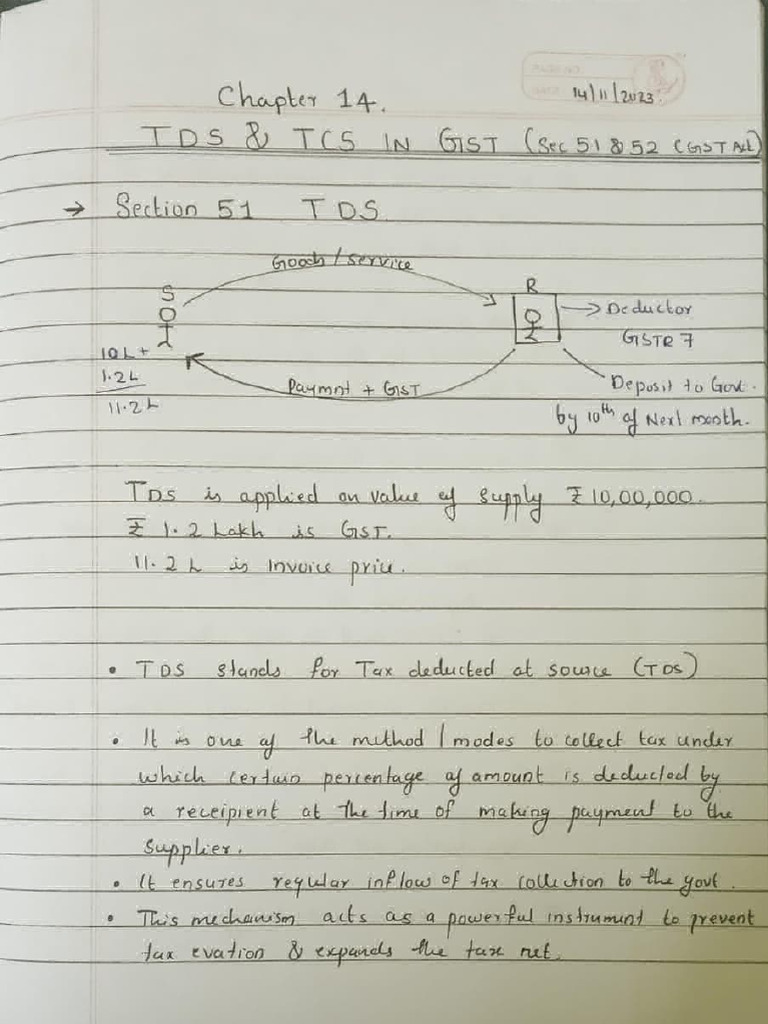 14/11/2023.
Chapter 14.
TDS & TCS IN GST (Sec 51 & 52 CGST Act)
→ Section 51 TDS
Goods / service
S
R
→ Deductor
GSTR 7
10 L +
1.2 L
11.2 L
Paymnt + GST
Deposit to Govt.
by 10th of Next month.
TDS is applied on value of supply ₹ 10,00,000.
₹ 1.2 Lakh is GST.
11.2 L is Invoice price.
• TDS stands for Tax deducted at source (TDS)
• It is one of the method / modes to collect tax under
which certain percentage of amount is deducted by
a receipient at the time of making payment to the
Supplier.
• It ensures regular inflow of tax collection to the govt.
• This mechanism acts as a powerful instrument to prevent
tax evation & expands the tax net.